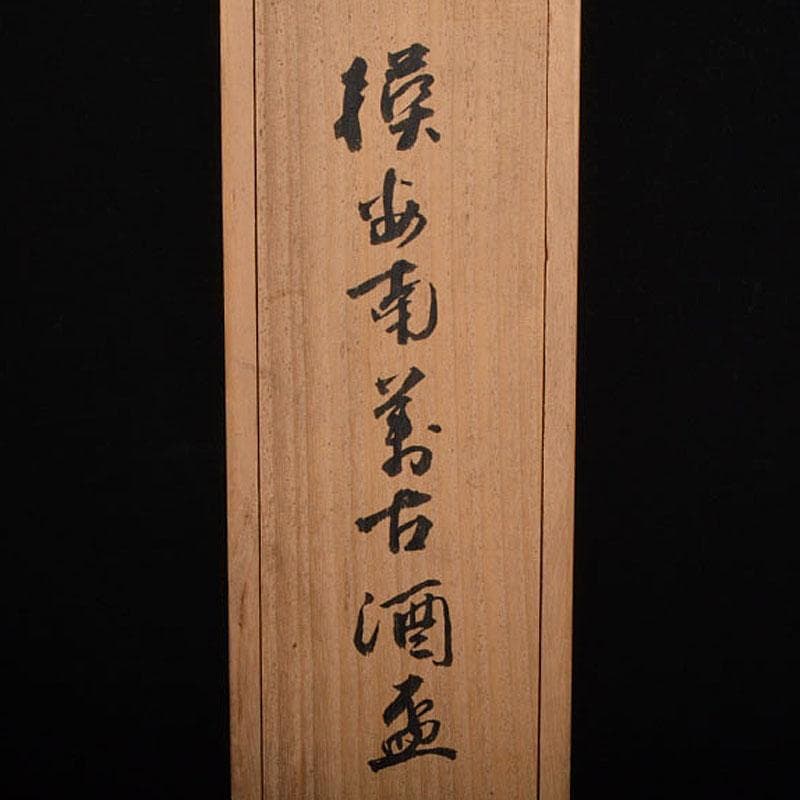 模安南萬古酒盃